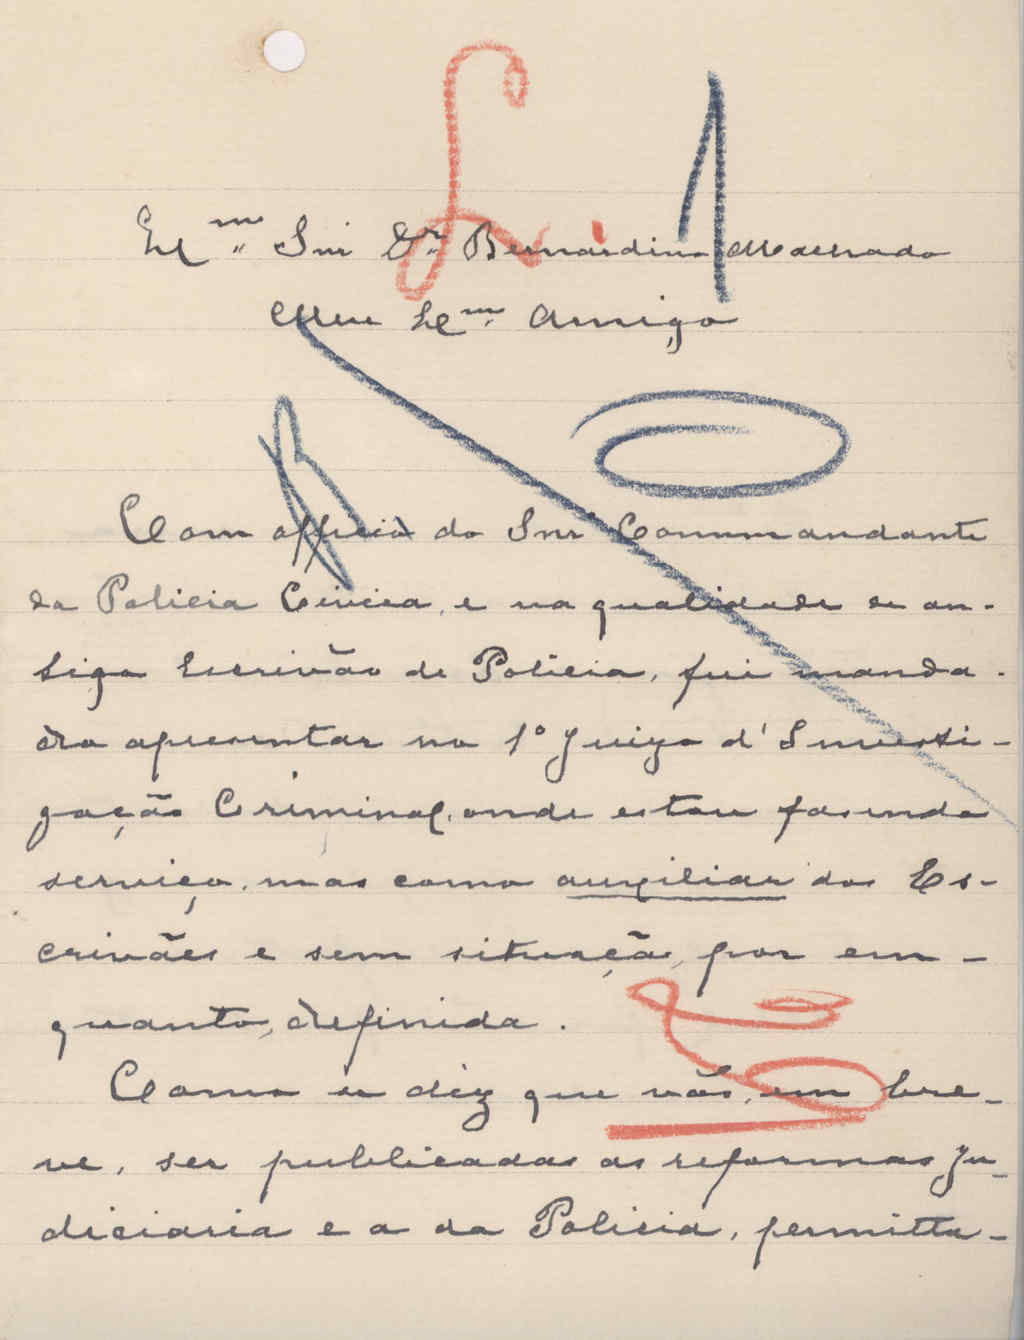 Ex.mo Snr Dr. Bernardino Machado
Meu Ex.mo Amigo
Com officio do Snr Commandante
da Policia Civica, e na qualidade de an-
tigo Escrivão de Policia, fui manda-
do apresentar no 1º Juizo d'Investi-
gação Criminal, onde estou fasendo
serviço, mas como auxiliar dos Es-
crivães e sem situação, por em-
quanto, definida.
Como se diz que vão, em bre-
ve, ser publicadas as reformas Ju-
diciaria e a da Policia, permitta-